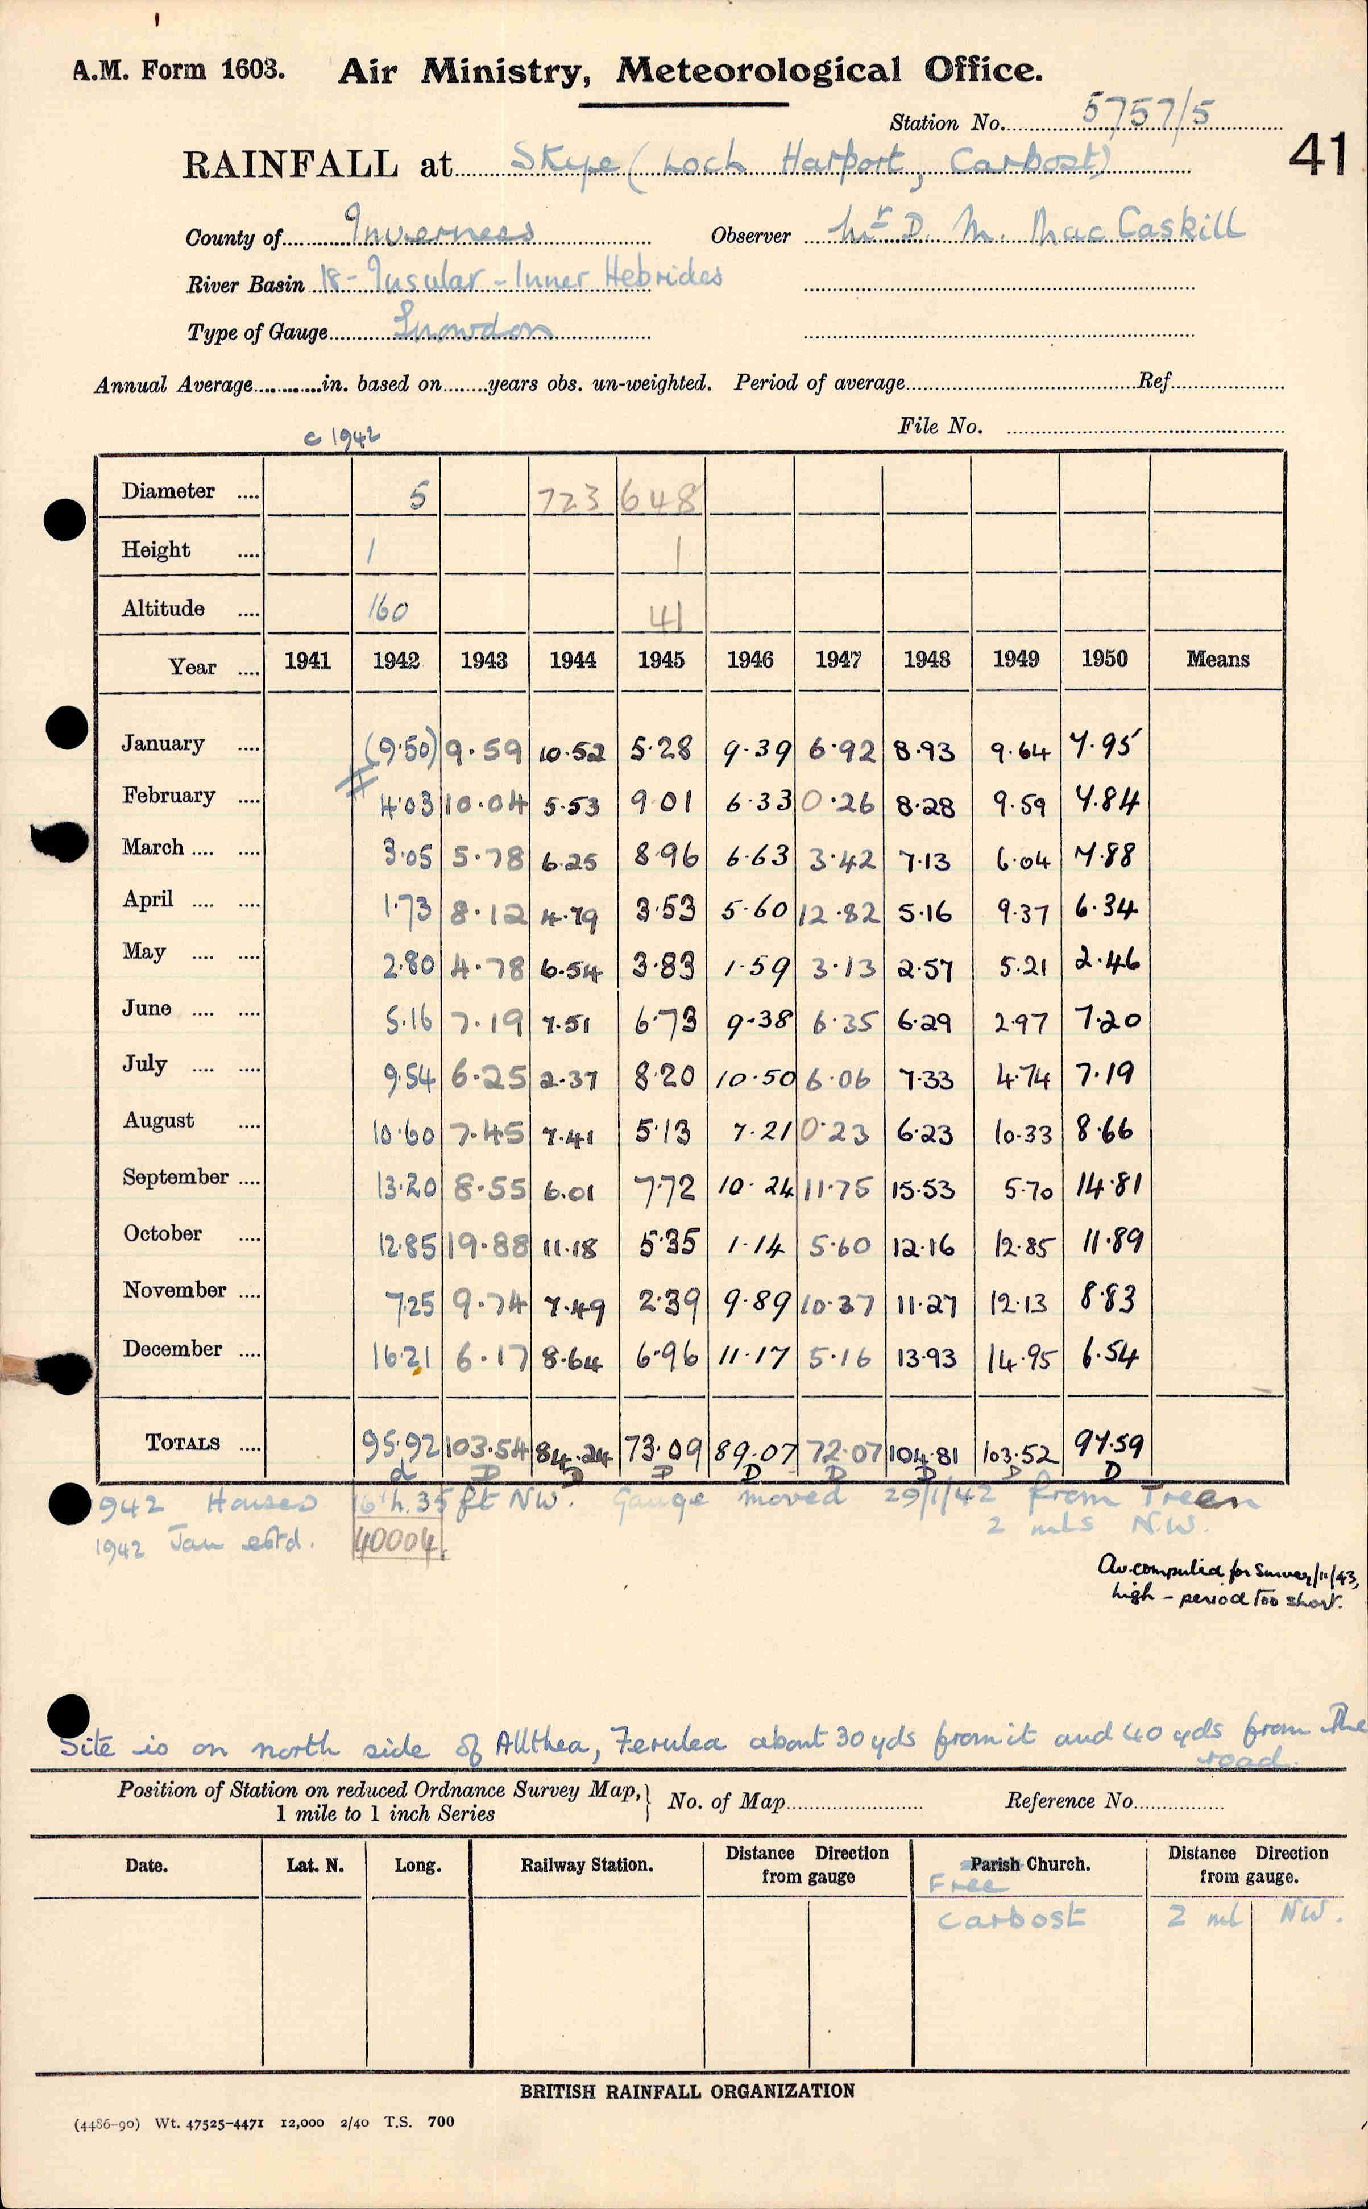 A.M. Form 1603. Air Ministry, Meteorological Office.
Station No. 5757/5
41
RAINFALL at Skye (Loch Harport, Carbost)
County of Inverness Observer Mr D. M. MacCaskill
River Basin 18 - Insular - Inner Hebrides
Type of Gauge Snowdon
Annual Average in. based on years obs. un-weighted. Period of average Ref
File No.
c 1942
Diameter 5 723 648
Height 1 1
Altitude 160 41
Year 1941 1942 1943 1944 1945 1946 1947 1948 1949 1950 Means
January (9.50) 9.59 10.52 5.28 9.39 6.92 8.93 9.64 7.95
February 4.03 10.04 5.53 9.01 6.33 0.26 8.28 9.59 7.84
March 3.05 5.78 6.25 8.96 6.63 3.42 7.13 6.04 7.88
April 1.73 8.12 4.79 3.53 5.60 12.82 5.16 9.37 6.34
May 2.80 4.78 6.54 3.83 1.59 3.13 2.57 5.21 2.46
June 5.16 7.19 7.51 6.73 9.38 6.35 6.29 2.97 7.20
July 9.54 6.25 2.37 8.20 10.50 6.06 7.33 4.74 7.19
August 10.60 7.45 7.41 5.13 7.21 0.23 6.23 10.33 8.66
September 13.20 8.55 6.01 7.72 10.24 11.75 15.53 5.70 14.81
October 12.85 19.88 11.18 5.35 1.14 5.60 12.16 12.85 11.89
November 7.25 9.74 7.49 2.39 9.89 10.37 11.27 12.13 8.83
December 16.21 6.17 8.64 6.96 11.17 5.16 13.93 14.95 6.54
TOTALS 95.92 103.54 84.24 73.09 89.07 72.07 104.81 103.52 97.59
d D D D D D D D D
942 Houses 16 h. 35 ft NW. Gauge moved 29/1/42 from Treen
2 mls N.W.
1942 Jan estd. 40004.
Av. computed for Survey/11/43,
high - period too short.
Site is on north side of Allthea, Ferulea about 30 yds from it and 40 yds from the
road.
Position of Station on reduced Ordnance Survey Map, No. of Map Reference No.
1 mile to 1 inch Series
Date. Lat. N. Long. Railway Station. Distance Direction from gauge Parish Church. Distance Direction from gauge.
Free
Carbost 2 ml NW.
BRITISH RAINFALL ORGANIZATION
(4486-90) Wt. 47525-4471 12,000 2/40 T.S. 700